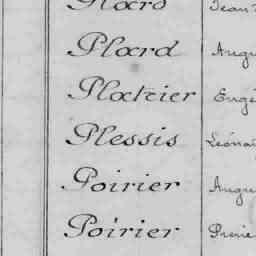 Plard Jean
Plard Augu
Platrier Eugè
Plessis Léona
Poirier Augu
Poirier Pierre